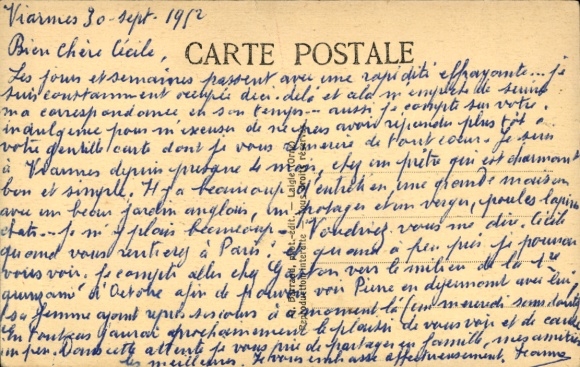 Viarmes 30 - sept - 1952
Bien Chère Cécile,
CARTE POSTALE
Les jours et semaines passent avec une rapidité effrayante... je
suis constamment occupée deci - delà et cela m'empêche de
ma correspondance en son temps - aussi je compte sur votre
indulgence pour m'excuser de avoir répondu plus tôt à
votre gentille carte dont je vous remercie de tout coeur. Je suis
à Viarmes depuis presque le mois, chez un prêtre qui est charmant
bon et simple. Il y a beaucoup d'entretien, une grande maison
avec un beau jardin anglais, un potager et un verger, poules lapins
chats... je m'y plais beaucoup - Voudrez vous me dire Cécile
quand vous rentrerez à Paris & quand à peu près je pourrai
vous voir. Je compte aller chez vers le milieu de la 1re
quinzaine d'Octobre afin de pouvoir voir Pierre en déjeunant avec lui,
sa femme ayant repris ses jours à ce moment-là (un mercredi sans doute)
En tout cas j'aurai prochainement le plaisir de vous voir et de causer
un peu. Dans cette attente je vous prie de partager en famille, mes amitiés
les meilleures. Je vous embrasse affectueusement. Jeanne
Phot.-édit. — Laigle (Orne)
Reproduction interdite — Tous droits réservés